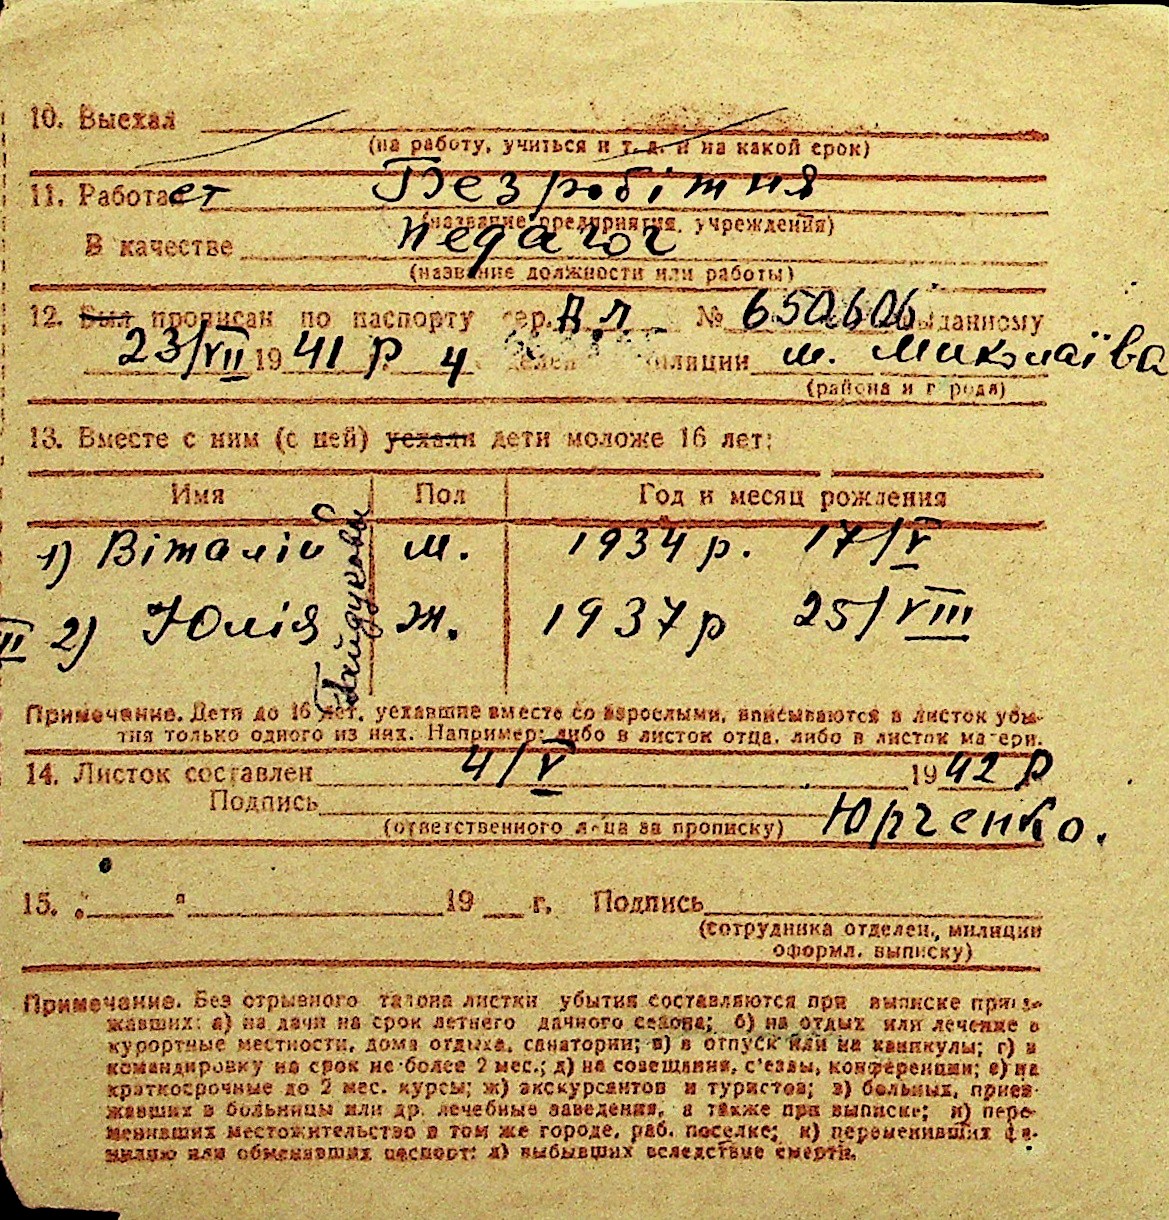 10. Выехал
(на работу, учиться и т. д. и на какой срок)
11. Работает Безробітня
(название предприятия, учреждения)
В качестве педагог
(название должности или работы)
12. Был прописан по паспорту сер. А.Л № 650606 выданному
23/VII 1941 р. 4 милиции м. Миколаїва
(района и города)
13. Вместе с ним (с ней) уехали дети моложе 16 лет:
Имя Пол Год и месяц рождения
1) Віталій м. 1934 р. 17/V
III 2) Юлія ж. 1937 р 25/VIII
Гайдукови
Примечание. Дети до 16 лет, уехавшие вместе со взрослыми, вписываются в листок убы-
тия только одного из них. Например: либо в листок отца, либо в листок матери.
14. Листок составлен 4/V 1942 р
Подпись Юрченко.
(ответственного лица за прописку)
15. „ " 19 г. Подпись
(сотрудника отделен., милиции
оформл. выписку)
Примечание. Без отрывного талона листки убытия составляются при выписке приез-
жавших: а) на дачи на срок летнего дачного сезона; б) на отдых или лечение в
курортные местности, дома отдыха, санатории; в) в отпуск или на каникулы; г) в
командировку на срок не более 2 мес.; д) на совещания, с'езды, конференции; е) на
краткосрочные до 2 мес. курсы; ж) экскурсантов и туристов; з) больных, приез-
жавших в больницы или др. лечебные заведения, а также при выписке; и) пере-
менивших местожительство в том же городе, раб. поселке; к) переменивших фа-
милию или обменявших паспорт; л) выбывших вследствие смерти.